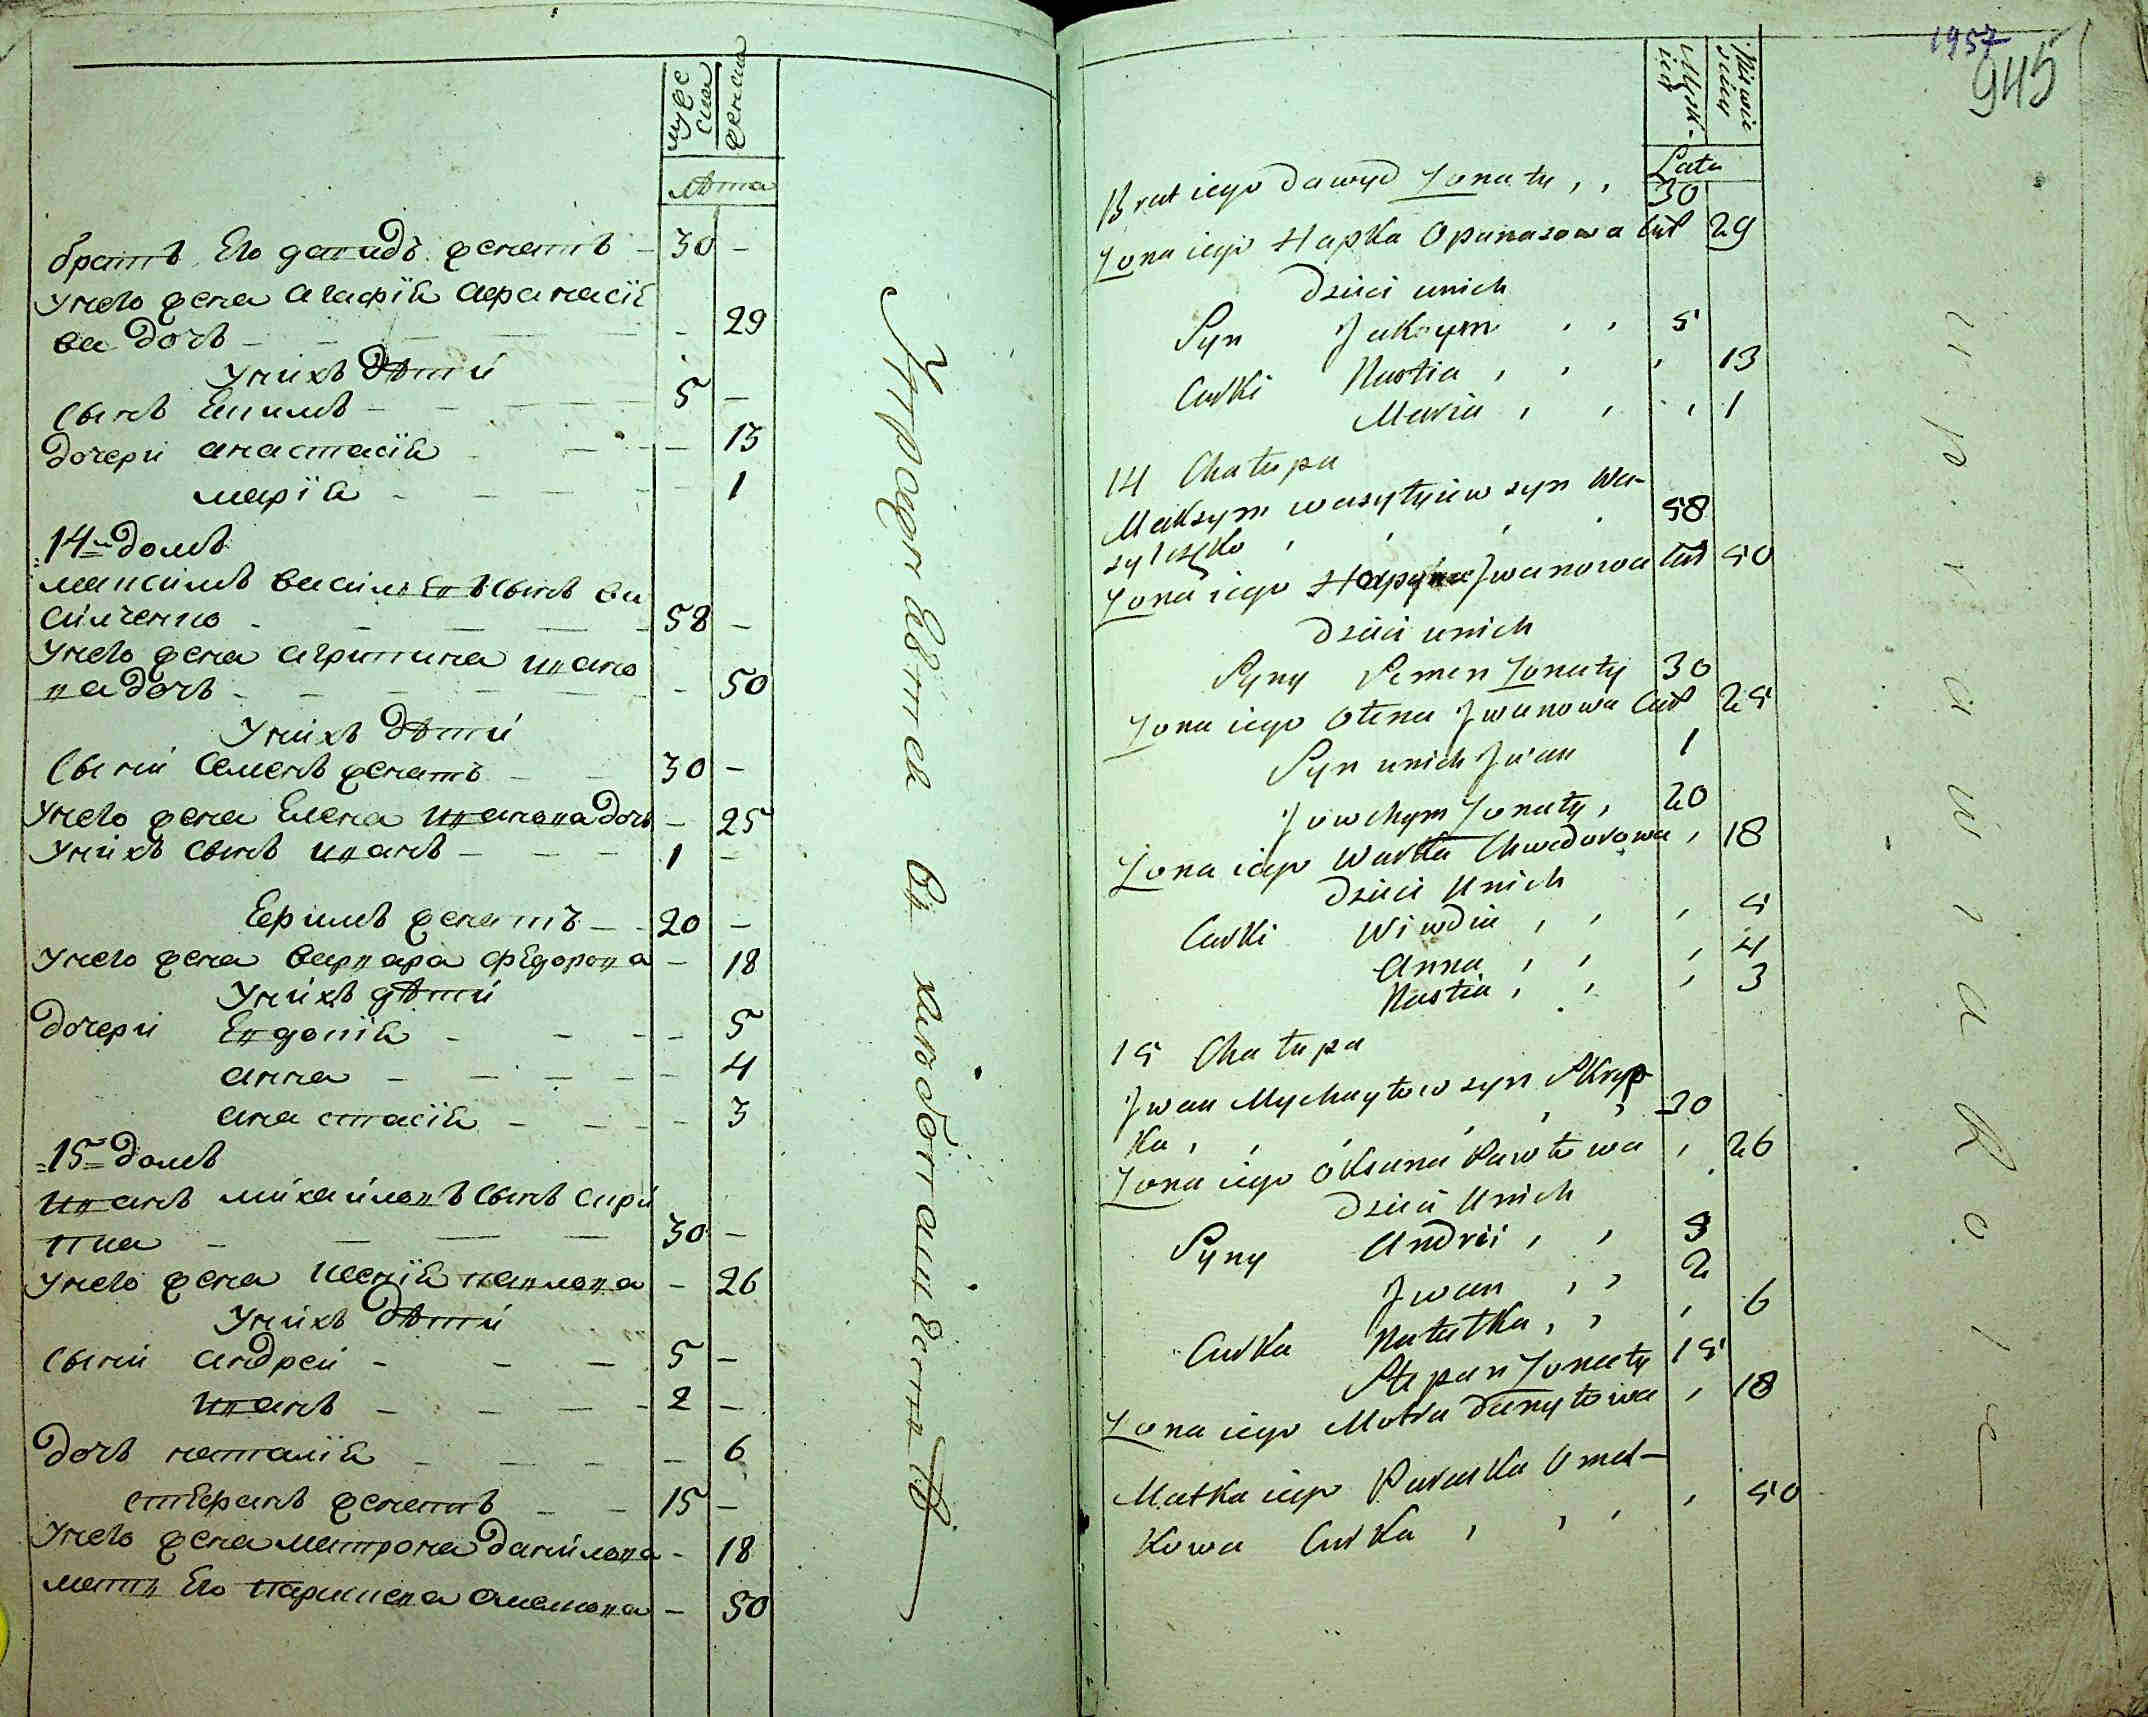 мужеска
женска
лѣта
братъ его давидъ женатъ - 30 -
У него жена Агафія Афанасіе
ва дочь - - 29
У нихъ дѣти
Сынъ Екимъ - 5 -
дочери анастасія - - 13
марія - - 1
14й домъ
максимъ василь евъ Сынъ ва
силченко - 58 -
У него жена агрипина ивано
ва дочь - - 50
У нихъ дѣти
Сыни Семенъ женатъ - 30 -
У него жена Елена ивановадочь - 25
У нихъ Сынъ иванъ - 1 -
Ефимъ женатъ - 20 -
У него жена варвара федорова - 18
У нихъ дѣти
дочери Евдокія - - 5
анна - - 4
анастасія - - 3
=15= домъ
иванъ михайловъ Сынъ скри
пка - 30 -
У него жена ксенія павлова - 26
У нихъ дѣти
Сыни андреи - 5 -
иванъ - 2 -
дочь наталія - - 6
стефанъ женатъ - 15 -
У него жена матрона данилова - 18
мать его параскева омелкова - 50
Lata
Brat iego Dawyd Zonaty , , 30
Zona iego Hapka Opanasowa Cur 29
Dzieci unich
Syn Jakym , , 5
Curki Nastia , , , 13
Maria , , , 1
14 Chałupa
Maksym wasyłyiew syn Wa-
sylczęko , , , 58
Zona iego Iwanowa Cur 50
Dzieci unich
Syny Semen Zonaty 30
Zona iego Ołena Iwanowa Cur 25
Syn unich Iwan 1
Jowchym Zonaty , 20
Zona iego Warka Chwedorowa , 18
Dzieci Unich
Curki Wiwdia , , , 5
Anna , , , 4
Nastia , , , 3
15 Chałupa
Iwan Mychayłow syn Skryp
ka , , , , , 30
Zona iego Oksana Pawłowa , 26
Dzieci Unich
Syny Andrii , , 5
Iwan , , 2
Curka Natałka , , , 6
Stepan Zonaty 15
Zona iego Motra Danyłowa , 18
Matka iego Paraska Omel-
kowa Curka , , , , 50
1957
945